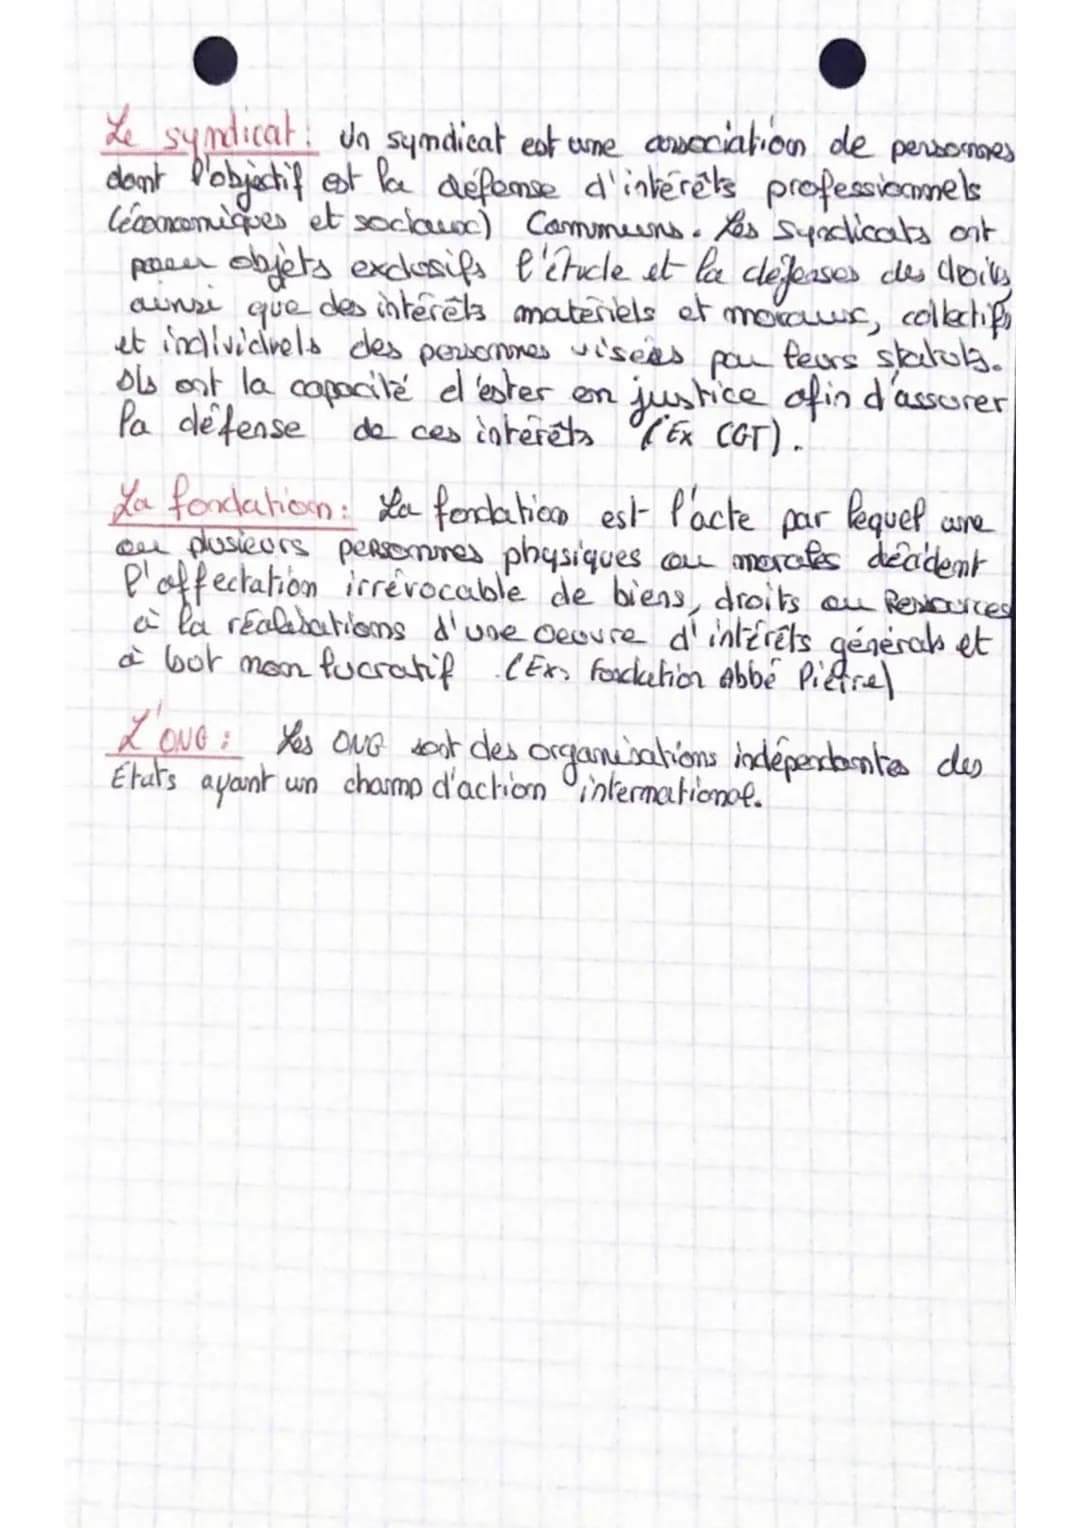 Le syndicat : Un syndicat est une association de personnes
dont l'objectif est la défense d'intérêts professionnels
(économiques et sociaux) Communs. Les Syndicats ont
pour objèts exclusifs l'étude et la défenses des droits,
ainsi que des intérêts matériels et moraux, collectifs
et individuels des personnes visées par leurs statuts.
Ils ont la capacité d'ester en justice afin d'assurer
la défense de ces intérêts (Ex CGT).
La fondation : La fondation est l'acte par lequel une
ou plusieurs personnes physiques ou morales décident
l'affectation irrévocable de biens, droits ou Ressources
à la réalisations d'une oeuvre d'intérêts générals et
à but non lucratif (Ex: Fondation Abbé Pierre)
L'ONG : Les ONG sont des organisations indépendantes des
États ayant un champ d'action international.